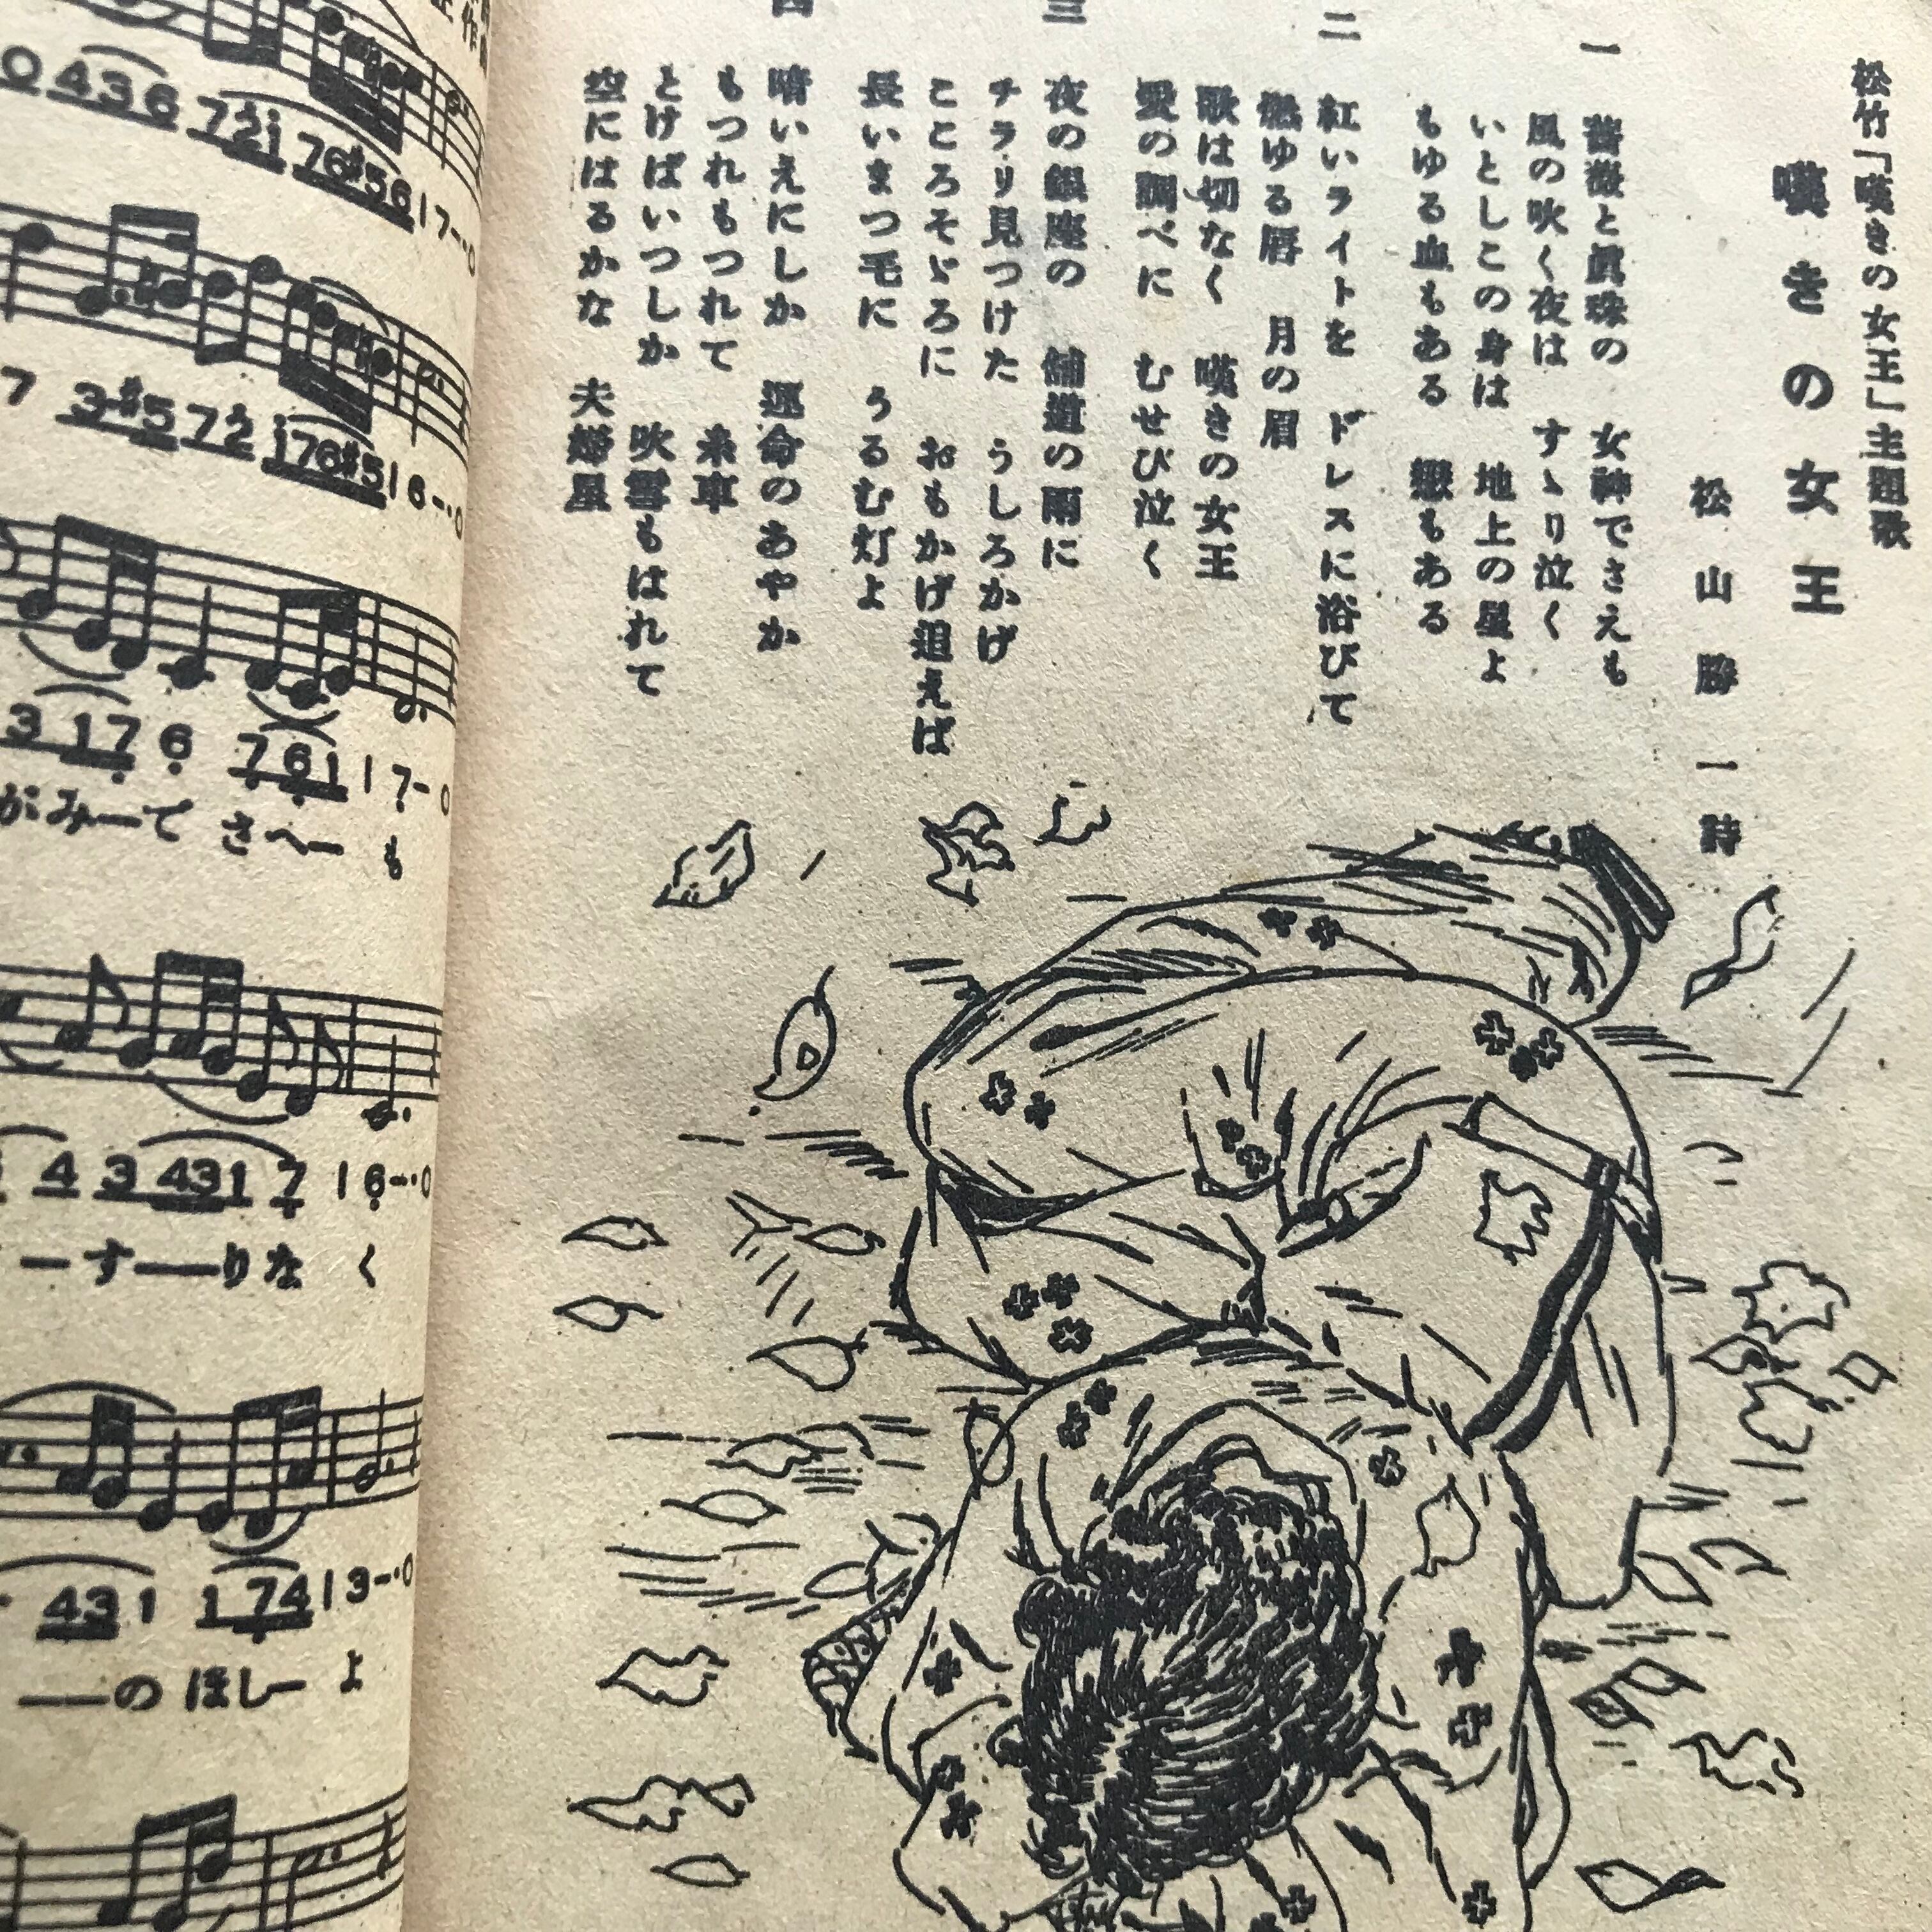 松竹「嘆きの女王」主題歌
嘆きの女王
松山勝一詩
一
薔薇と眞珠の 女神でさえも
風の吹く夜は すゝり泣く
いとしこの身は 地上の星よ
もゆる血もある 戀もある
二
紅いライトを ドレスに浴びて
燃ゆる唇 月の眉
歌は切なく 嘆きの女王
愛の調べに むせび泣く
三
夜の銀座の 舗道の雨に
チラリ見つけた うしろかげ
こころそゞろに おもかげ追えば
長いまつ毛に うるむ灯よ
四
暗いえにしか 運命のあやか
もつれもつれて 糸車
とけばいつしか 吹雪もはれて
空にはるかな 夫婦星
0 436 72i 76#56 | 7-・0
7 3・#5 72 i76#5 | 6-・0
3 17 6 761 | 7-0
がみーで さへー も
4 3 431 7 | 6-・0
ーすーーりな く
43 1 1 74 | 3-・0
ーーの ほしー よ